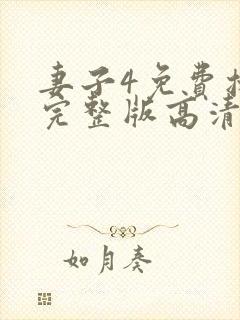 妻子4免費
完整版高清
如月奏